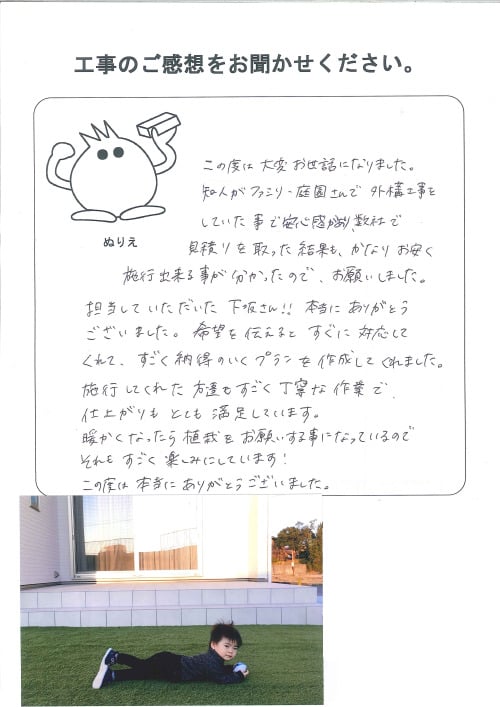 工事のご感想をお聞かせください。
ぬりえ
この度は大変お世話になりました。
知人がファミリー庭園さんで外構工事を
していた事で安心感があり、数社で
見積りを取った結果も、かなりお安く
施行出来る事が分かったので、お願いしました。
担当していただいた下坂さん!!本当にありがとう
ございました。希望を伝えるとすぐに対応して
くれて、すごく納得のいくプランを作成してくれました。
施行してくれた方達もすごく丁寧な作業で、
仕上がりもとても満足しています。
暖かくなったら植栽をお願いする事になっているので
それもすごく楽しみにしています!
この度は本当にありがとうございました。